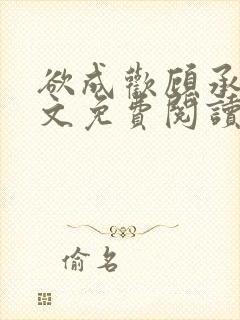 欲成歡顧承
文免費閱讀
偷名